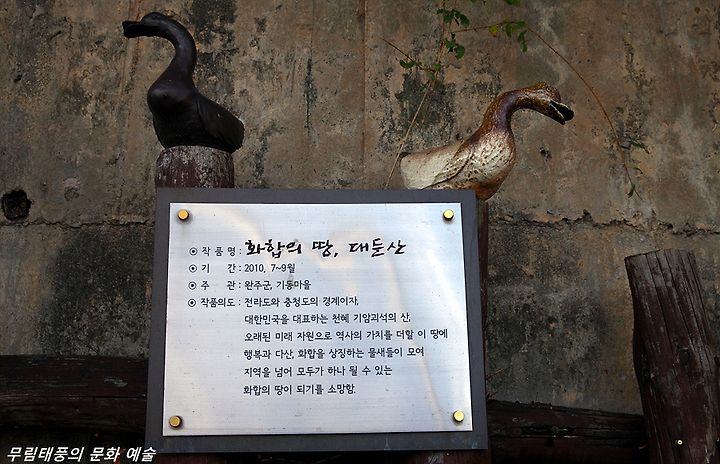 ⊙ 작 품 명 : 화합의 땅, 대둔산
⊙ 기 간 : 2010. 7~9월
⊙ 주 관 : 완주군, 기동마을
⊙ 작품의도 : 전라도와 충청도의 경계이자,
대한민국을 대표하는 천혜 기암괴석의 산,
오래된 미래 자원으로 역사의 가치를 더할 이 땅에
행복과 다산, 화합을 상징하는 물새들이 모여
지역을 넘어 모두가 하나 될 수 있는
화합의 땅이 되기를 소망함.
무림태풍의 문화 예술